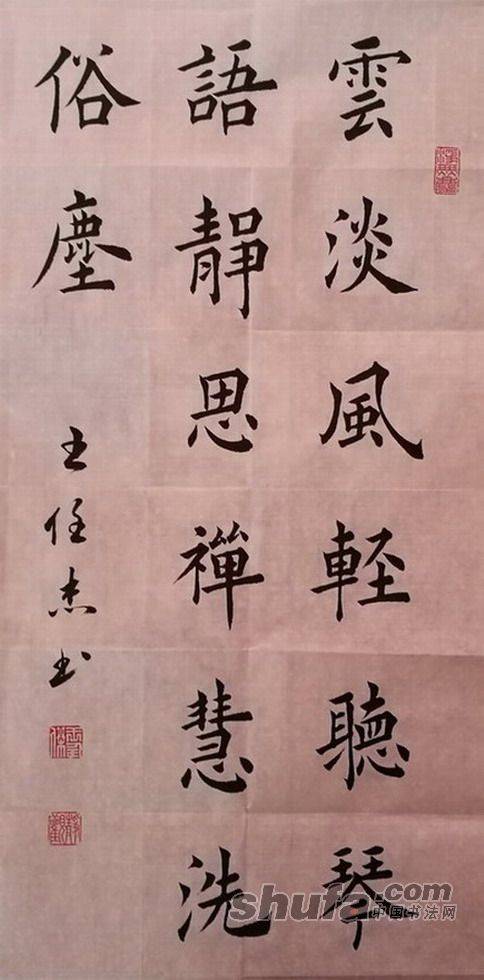 雲淡風輕聽琴
語靜思禪慧洗
俗塵
王任杰书
shufa.com
中国书法网